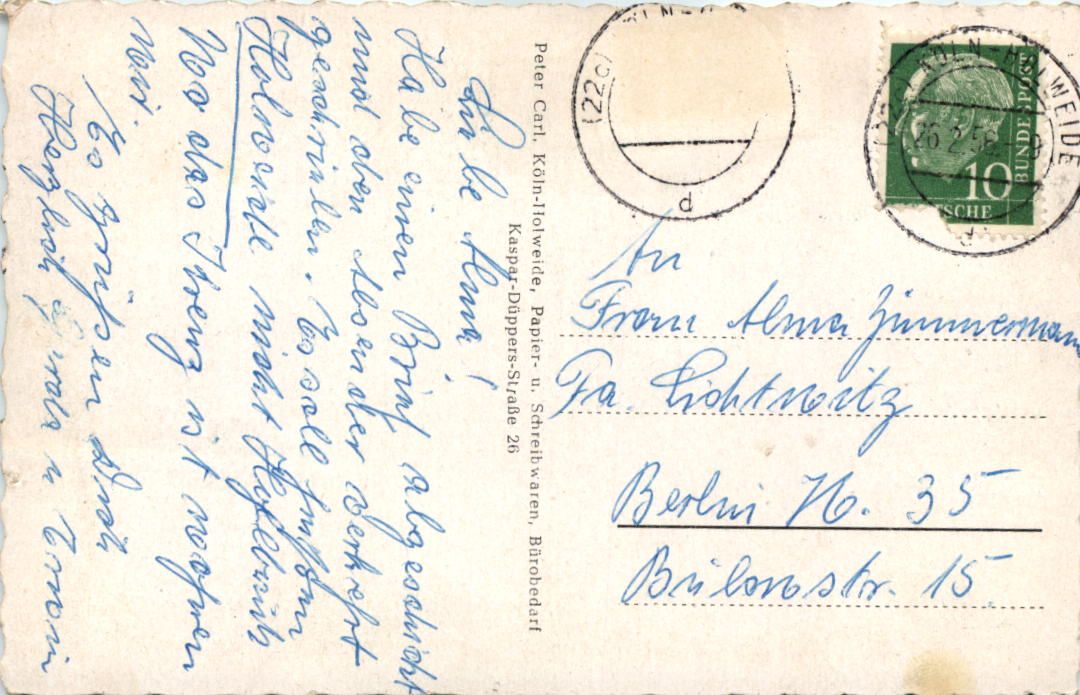 Liebe Alma!
Habe einen Brief abgeschickt
und den Absender verkehrt
geschrieben. Es soll
Holweide nicht
Wo das Kreuz ist wohnen
wir.
Es grüßen Dich
Herzlich Gerda u Erwin
Peter Carl, Köln-Holweide, Papier- u. Schreibwaren, Bürobedarf
Kaspar-Düppers-Straße 26
(22c)
d
KÖLN-HOLWEIDE
26.2.56.-9
d
10
BUNDESPOST
TSCHE
An
Frau Alma Zimmermann
Fa. Lichtwitz
Berlin W. 35
Bülowstr. 15.